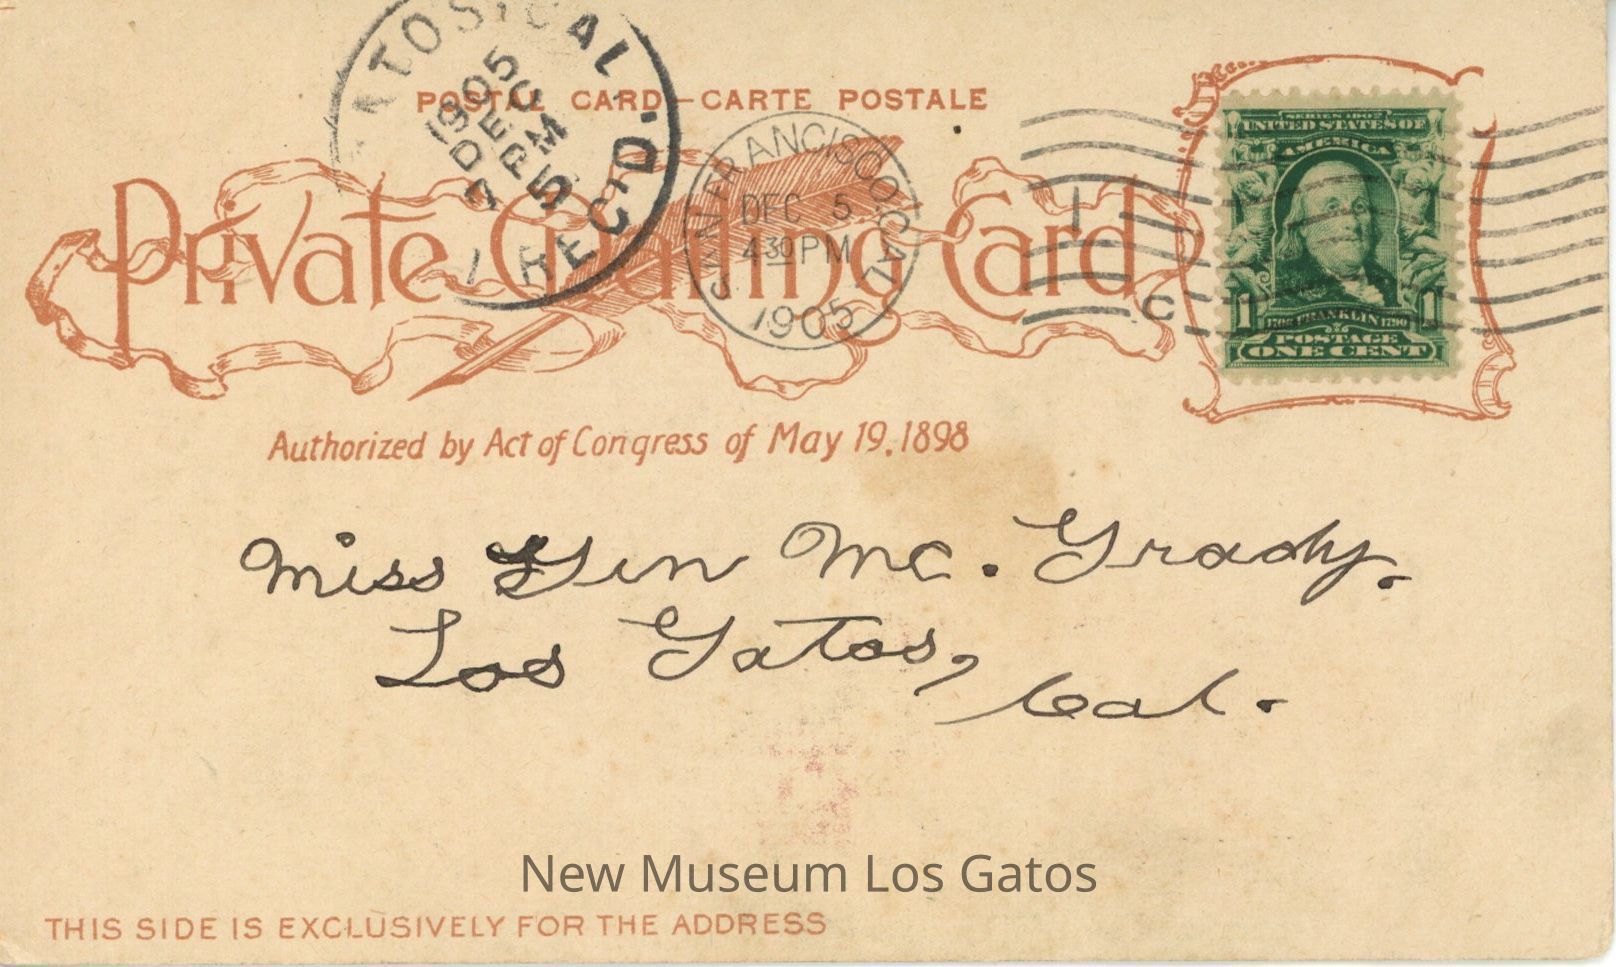 ATOS, CAL.
1905
DEC
5
7 PM
REC'D.
POSTAL CARD—CARTE POSTALE
SAN FRANCISCO CAL
DEC 5
4 30 PM
1905
1
C
Private Mailing Card
SERIES 1902
UNITED STATES OF
AMERICA
1 1706 FRANKLIN 1790 1
POSTAGE
ONE CENT
Authorized by Act of Congress of May 19, 1898
Miss Gen Mc. Grady.
Los Gatos,
Cal.
New Museum Los Gatos
THIS SIDE IS EXCLUSIVELY FOR THE ADDRESS